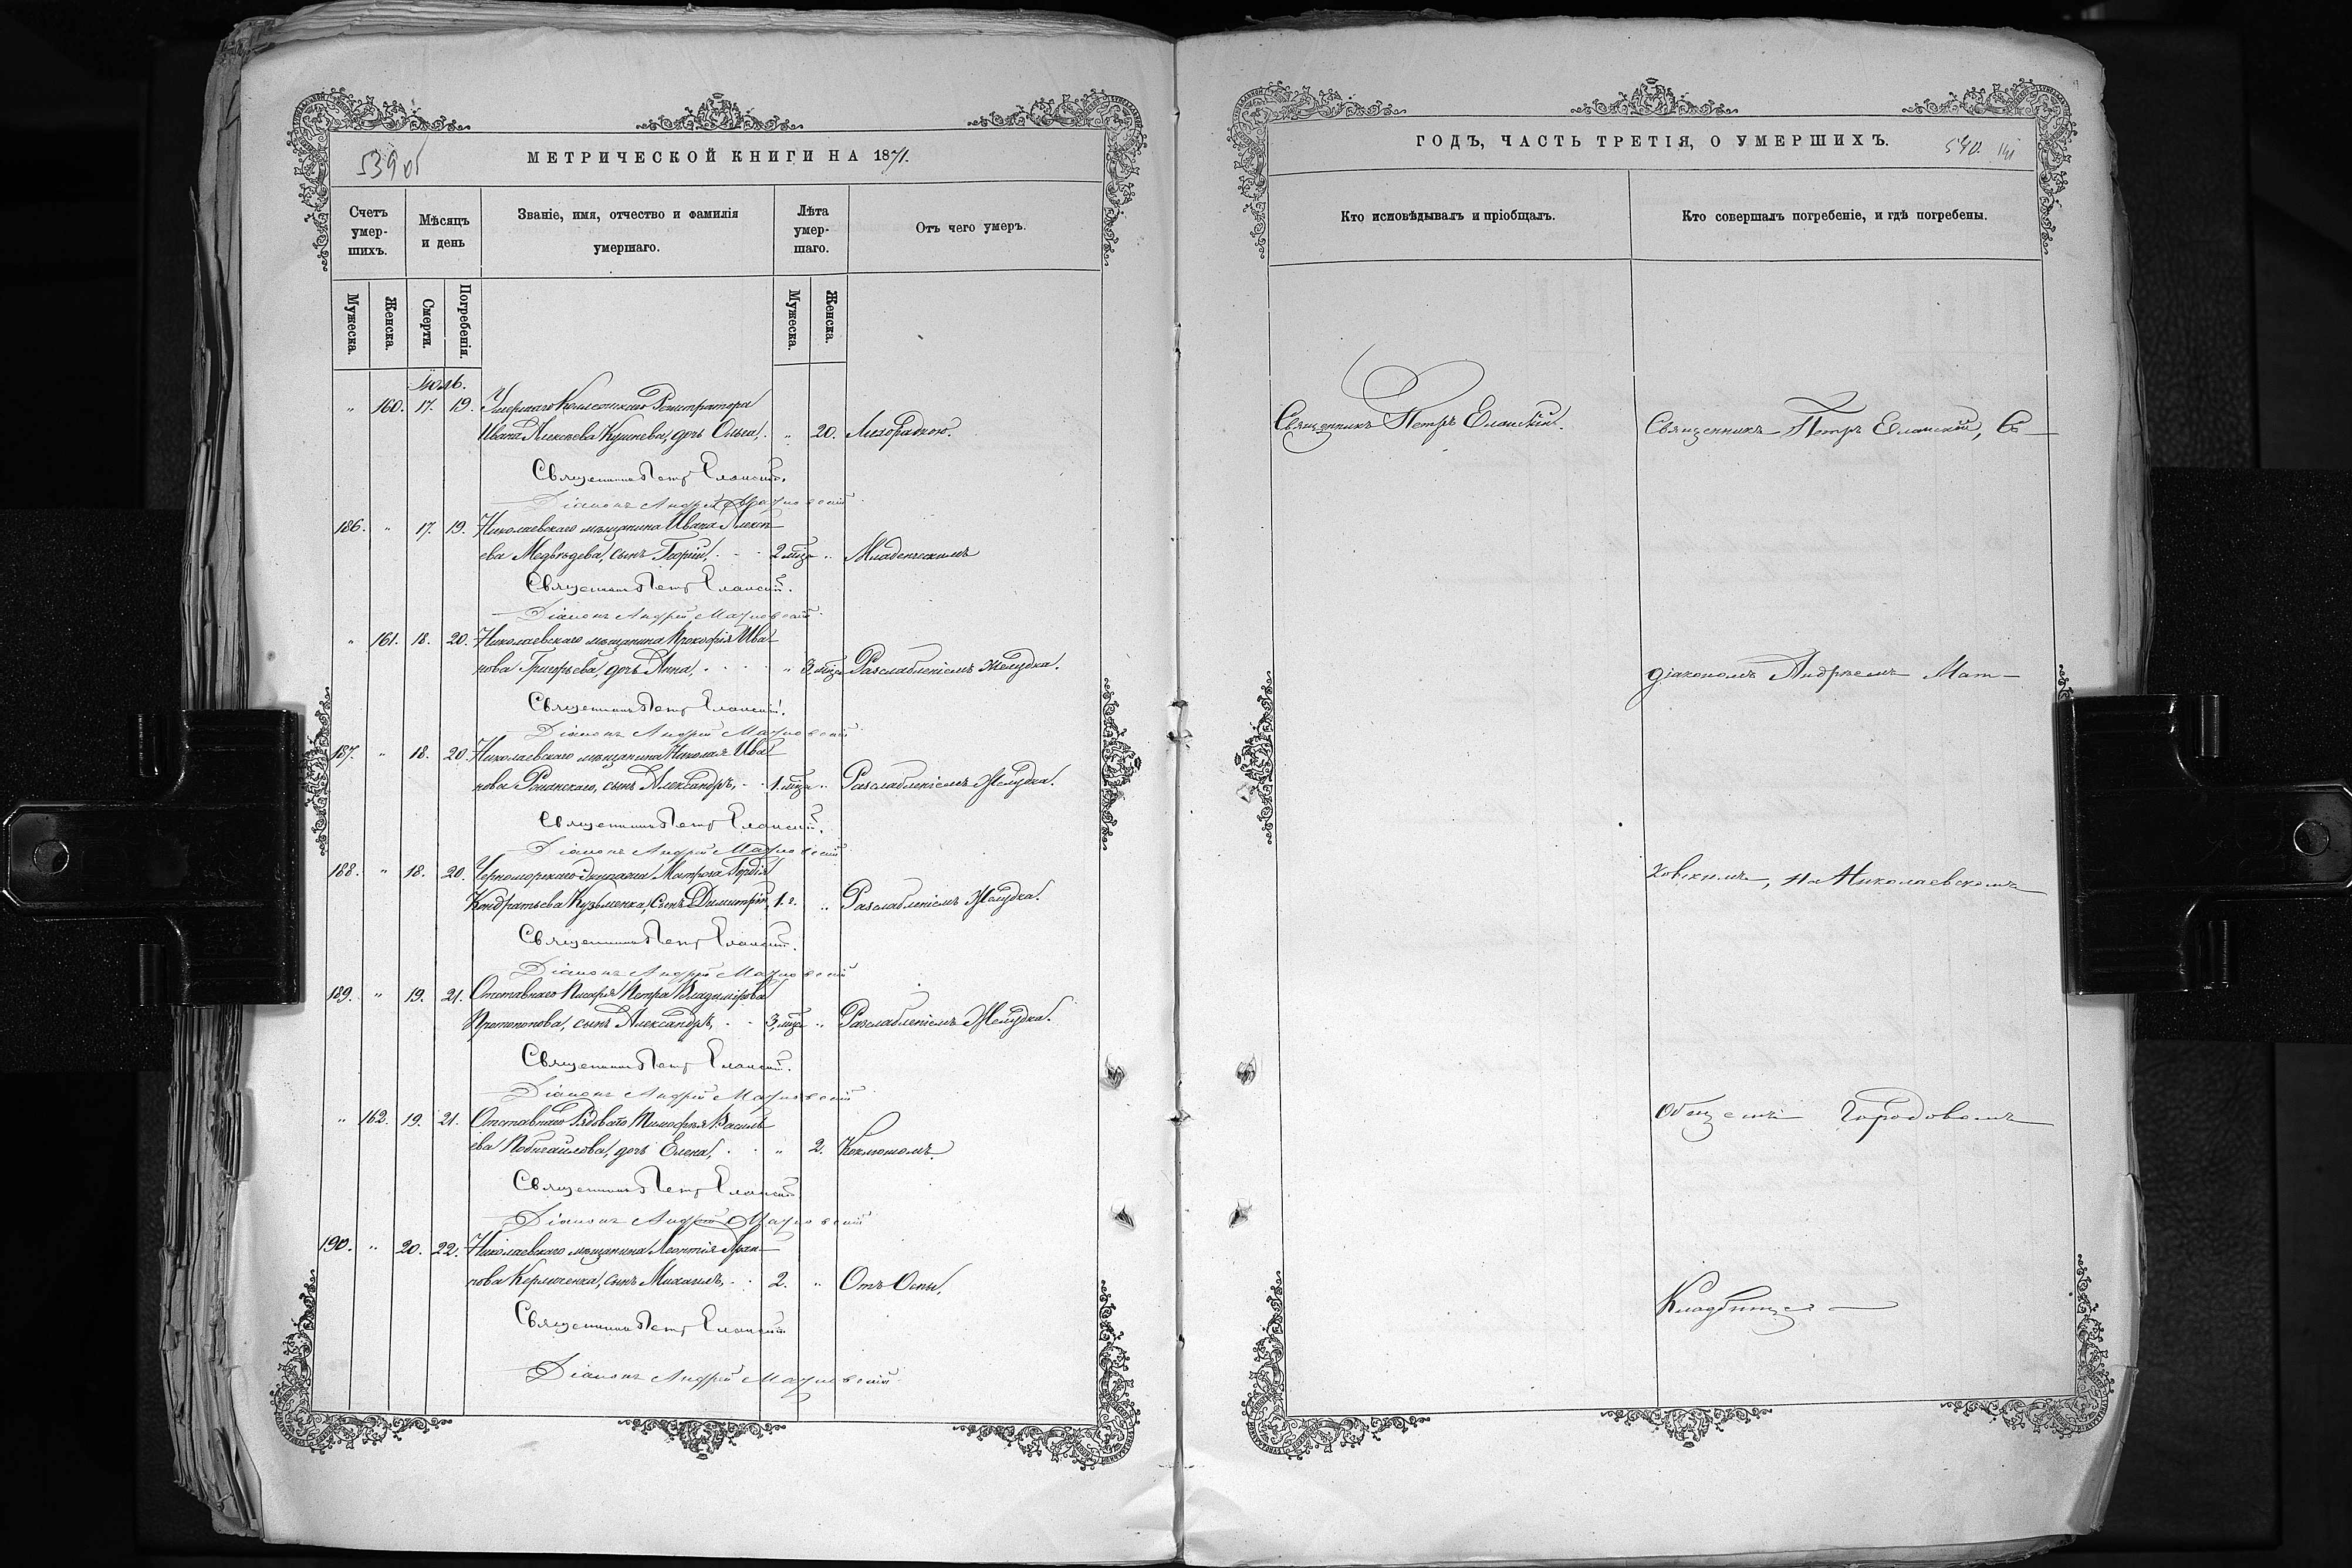 539 об
МЕТРИЧЕСКОЙ КНИГИ НА 1871.
Счетъ умер-шихъ.
Мѣсяцъ и день
Званіе, имя, отчество и фамилія умершаго.
Лѣта умер-шаго.
Отъ чего умеръ.
Мужеска.
Женска.
Смерти.
Погребенія.
Мужеска.
Женска.
Іюль.
" 160. 17. 19. Умершаго Коллежскаго Регистратора
Ивана Алексѣева Кушнева, дочь Ольга, . " 20. Лихорадкою.
Священникъ Петръ Еланскій.
Діаконъ Андрей Матковскій
186. " 17. 19. Николаевскаго мѣщанина Ивана Алексѣ-
ева Медвѣдева, сынъ Георгій, . . 2 мѣс. " Младенческимъ
Священникъ Петръ Еланскій.
Діаконъ Андрей Матковскій
" 161. 18. 20. Николаевскаго мѣщанина Прокофія Ива-
нова Григорьева, дочь Анна, . . " 3 мѣс. Разслабленіемъ Желудка.
Священникъ Петръ Еланскій.
Діаконъ Андрей Матковскій
187. " 18. 20. Николаевскаго мѣщанина Николая Ива-
нова сынъ Александръ, - . 1 мѣс. " Разслабленіемъ Желудка.
Священникъ Петръ Еланскій.
Діаконъ Андрей Матковскій
188. " 18. 20. Черноморскаго Экипажа Матроса Гордія
Кондратьева Кузьменка, сынъ Димитрій, 1. г. " Разслабленіемъ Желудка.
Священникъ Петръ Еланскій.
Діаконъ Андрей Матковскій
189. " 19. 21. Отставнаго Писаря Петра Владимірова
Протопопова, сынъ Александръ, . . 3 мѣс. " Разслабленіемъ Желудка.
Священникъ Петръ Еланскій.
Діаконъ Андрей Матковскій
" 162. 19. 21. Отставнаго Рядоваго Тимофея Василь-
ева дочь Елена, . . " 2. Коклюшомъ.
Священникъ Петръ Еланскій
Діаконъ Андрей Матковскій
190. " 20. 22. Николаевскаго мѣщанина Леонтія
сынъ Михаилъ, . . 2. " Отъ Оспы.
Священникъ Петръ Еланскій
Діаконъ Андрей Матковскій
ГОДЪ, ЧАСТЬ ТРЕТІЯ, О УМЕРШИХЪ.
540. 141
Кто исповѣдывалъ и пріобщалъ.
Кто совершалъ погребеніе, и гдѣ погребены.
Священникъ Петръ Еланскій.
Священникъ Петръ Еланскій, Съ
діакономъ Андреемъ Мат-
ковскимъ, на Николаевскомъ
Общемъ Городовомъ
Кладбищѣ